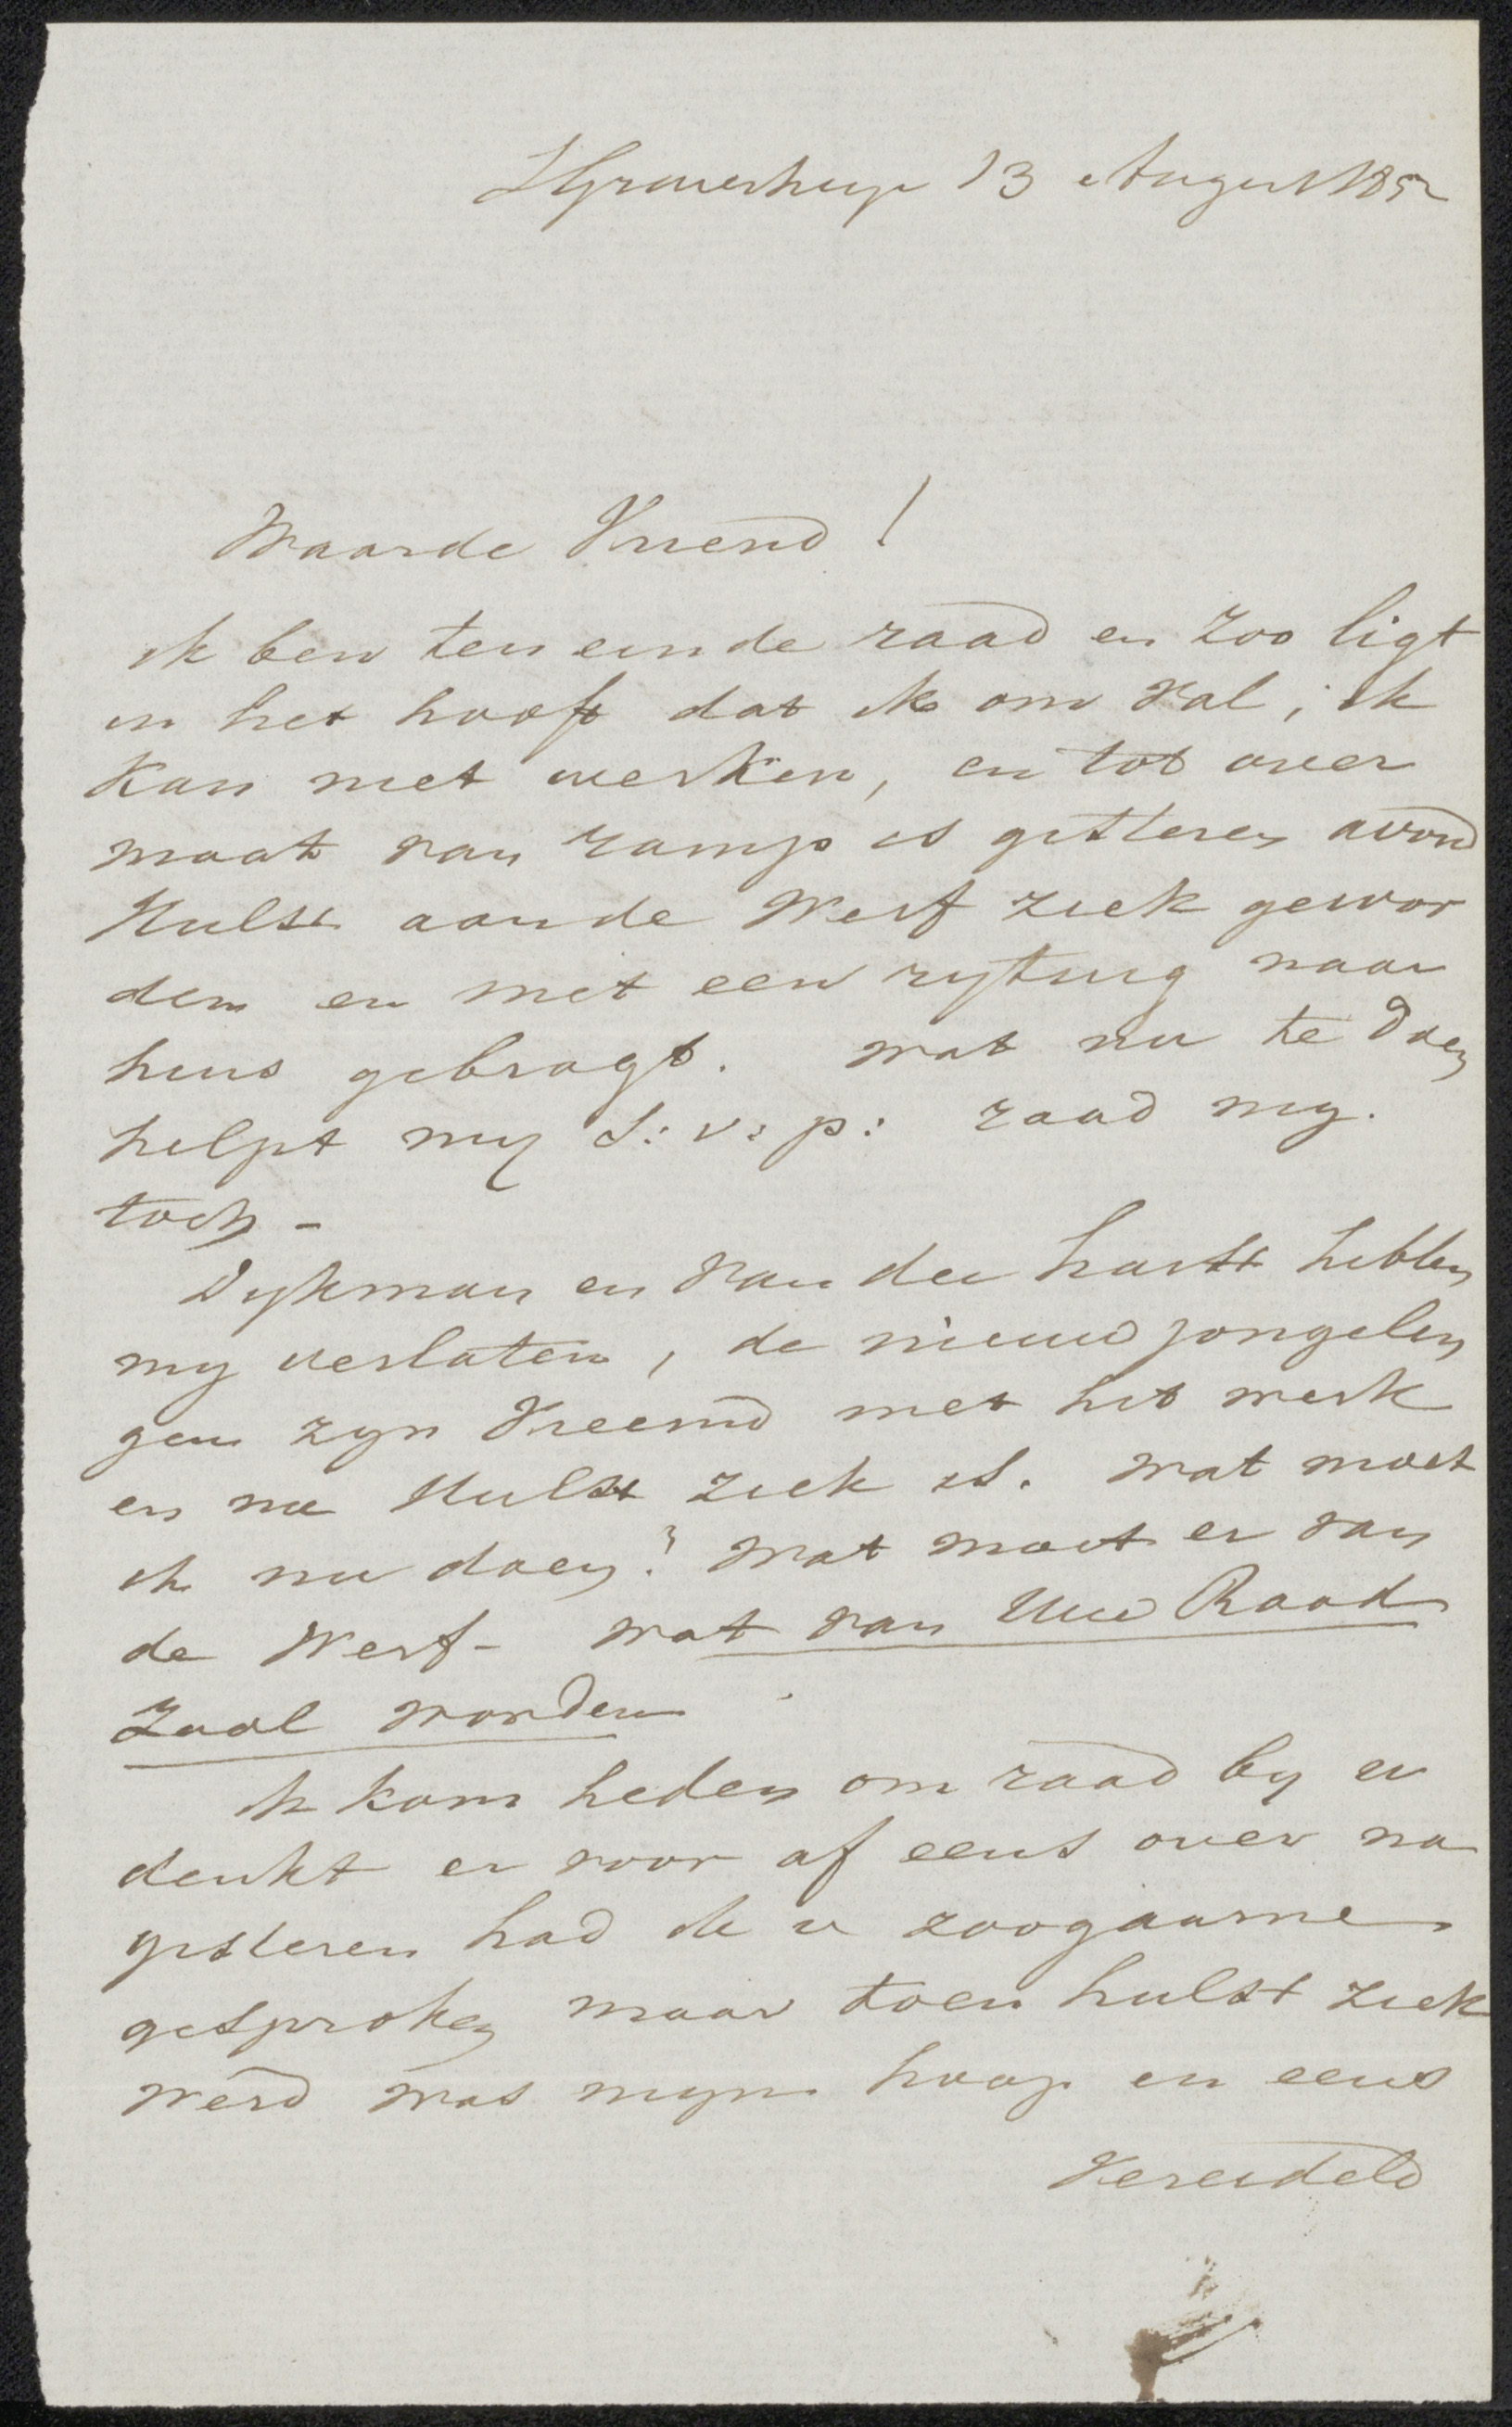 SGravenhage 13 August 1852
Waarde Vriend!
ik ben ten einde raad en zoo ligt
in het hooft dat ik om val, ik
kan niet werken, en tot over
maat van ramp is gisteren avond
Hulst aan de Werf ziek gewor
den en met een rytuig naar
huis gebragt. wat nu te doen
helpt my S: v: p: raad my.
toch -
Dykman en Van der harst hebben
my verlaten, de nieuw jongelin
gen zyn Vreemd met het werk
en nu Hulst ziek is. wat moet
ik nu doen? wat moet er van
de Werf - wat van Uw Raad
Zaal worden
Ik kom heden om raad by u
denkt er voor af eens over na
gisteren had ik u zoogaarne
gesproken maar toen hulst ziek
werd was myn hoop en eens
Vereideld